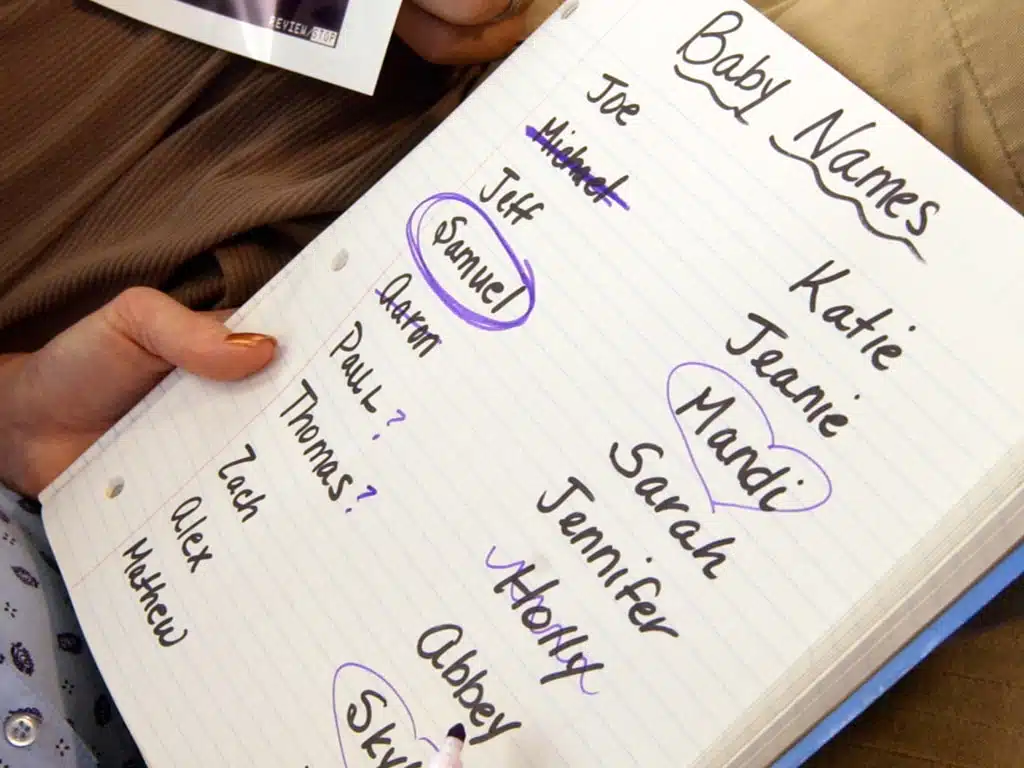 REVIEW/STOP
Baby Names
Joe
Michael
Jeff
Samuel
Aaron
Paul ?
Thomas ?
Zach
Alex
Mathew
Katie
Jeanie
Mandi
Sarah
Jennifer
Holly
Abbey